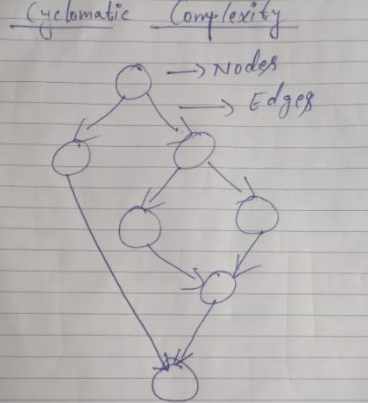 Cyclomatic Complexity
→ Nodes
→ Edges